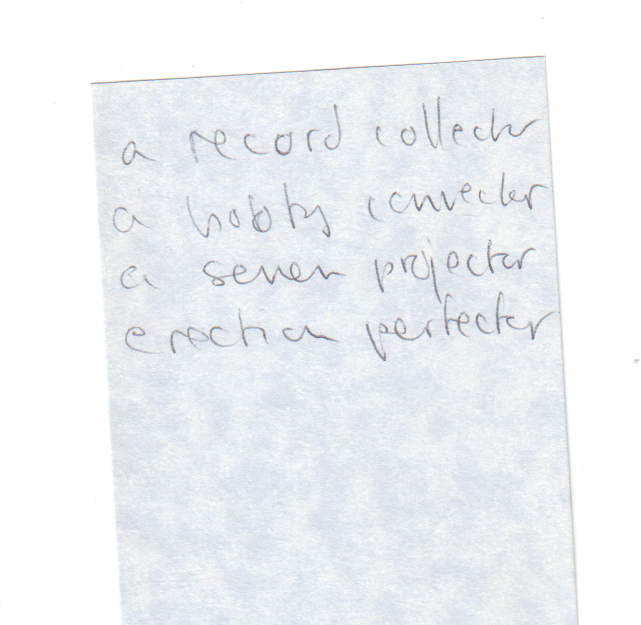 a record collector
a hobby convector
a semen projector
erection perfector